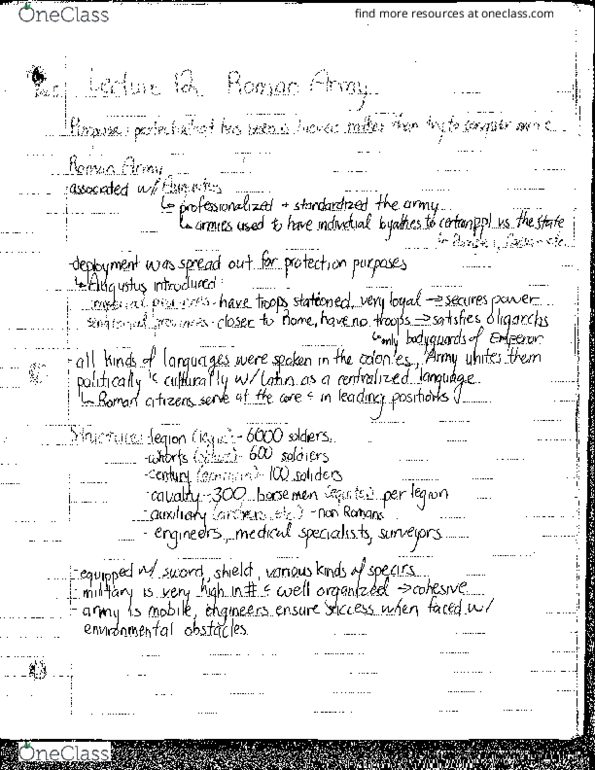 OneClass
find more resources at oneclass.com
Lecture 12 Roman Army
Purpose: protect what has been
rather than try to conquer more
Roman Army
associated w/ Augustus
↳ professionalized + standardized the army
↳ armies used to have individual loyalties to certain ppl vs the state
-deployment was spread out for protection purposes
↳ Augustus introduced:
imperial provinces - have troops stationed, very loyal → secures power
senatorial provinces - closer to Rome, have no troops → satisfies oligarchs
↳ only bodyguards of Emperor
- all kinds of languages were spoken in the colonies, Army unites them
politically & culturally w/ Latin as a centralized language
↳ Roman citizens serve at the core & in leading positions
Structure: legion - 6000 soldiers
- 600 soldiers
-century - 100 soliders
-cavalry - 300 horsemen (equites) per legion
- auxiliary (archers, etc.) - non Romans
- engineers, medical specialists, surveyors
-equipped w/ sword, shield, various kinds of spears
- military is very high in # & well organized → cohesive
- army is mobile, engineers ensure success when faced w/
environmental obstacles
OneClass